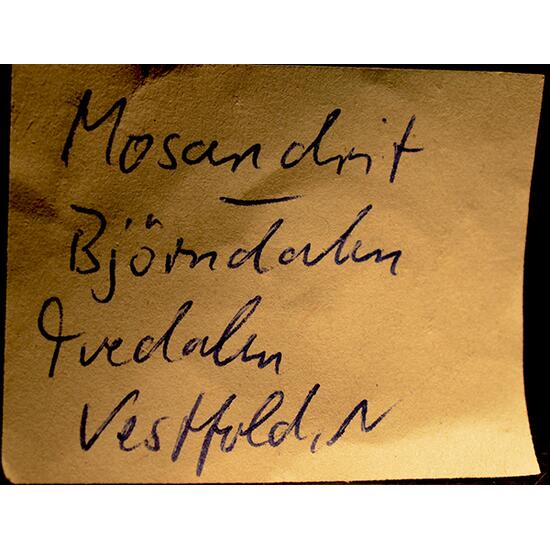 Mosandrit
Björndalen
Tvedalen
Vestfold, N